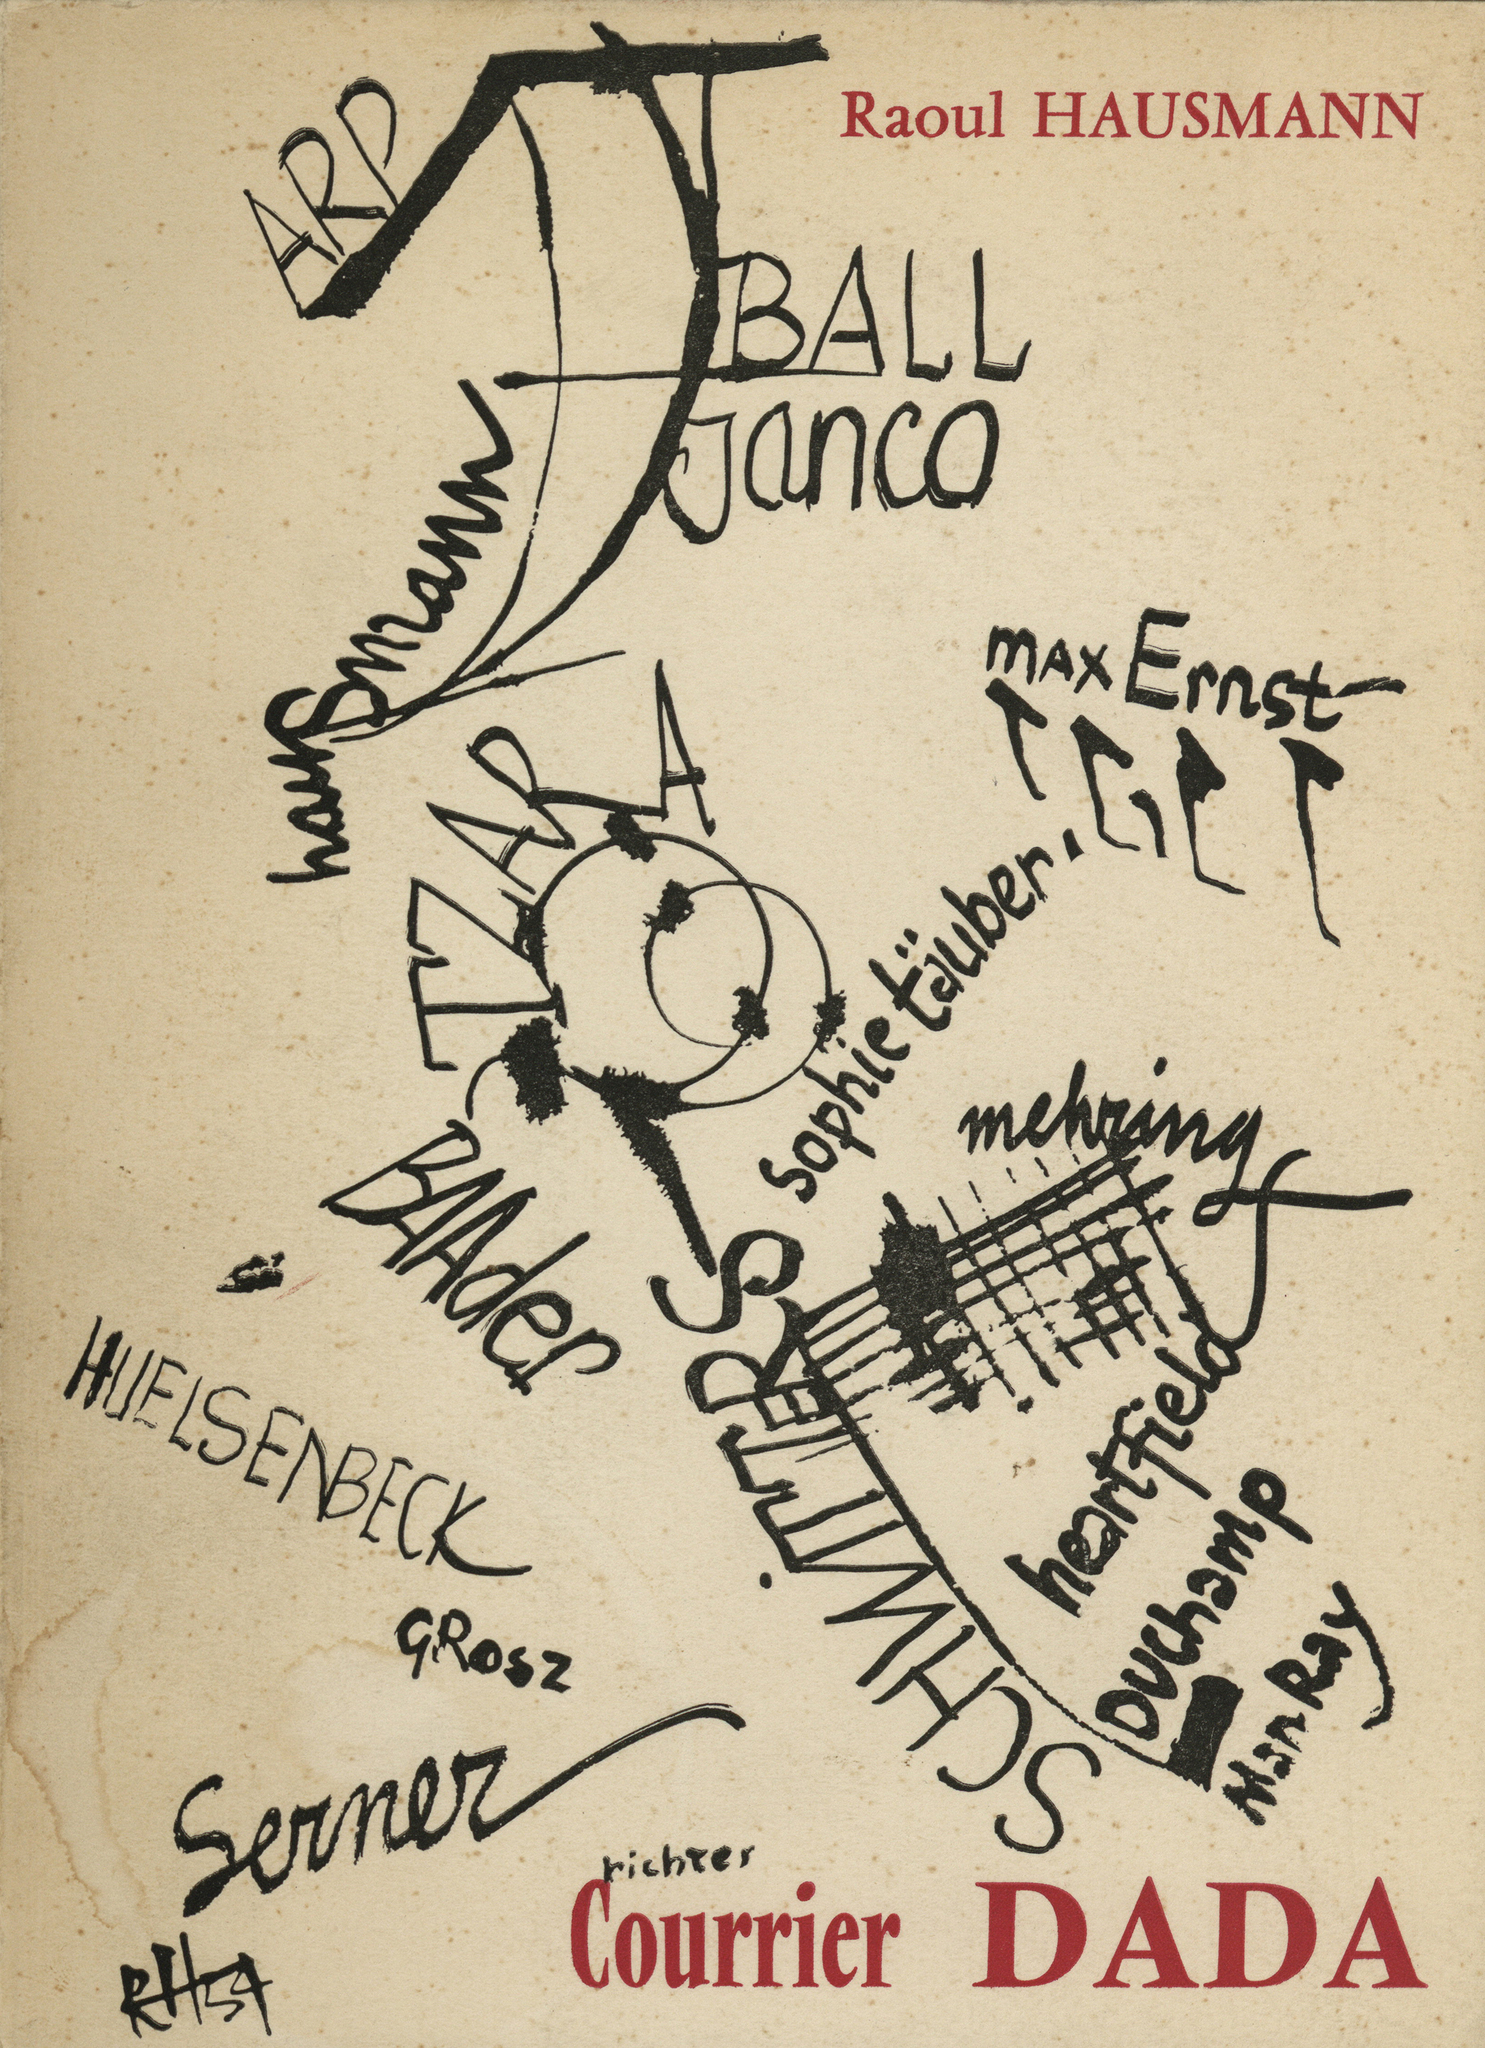 Raoul HAUSMANN
ARP
BALL
Janco
hausmann
max Ernst
TZARA
sophie täuber
mehring
BAAder
SCHWiTTERS
heartfield
HUELSENBECK
Duchamp
GROSZ
Man Ray
Serner
richter
Courrier DADA
RH 54